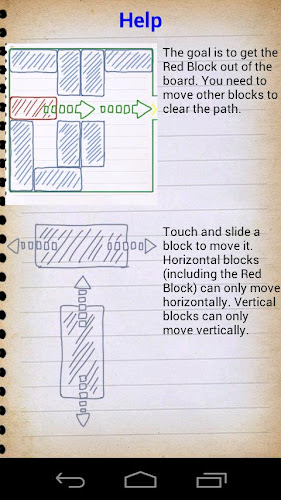 Help
The goal is to get the
Red Block out of the
board. You need to
move other blocks to
clear the path.
Touch and slide a
block to move it.
Horizontal blocks
(including the Red
Block) can only move
horizontally. Vertical
blocks can only
move vertically.